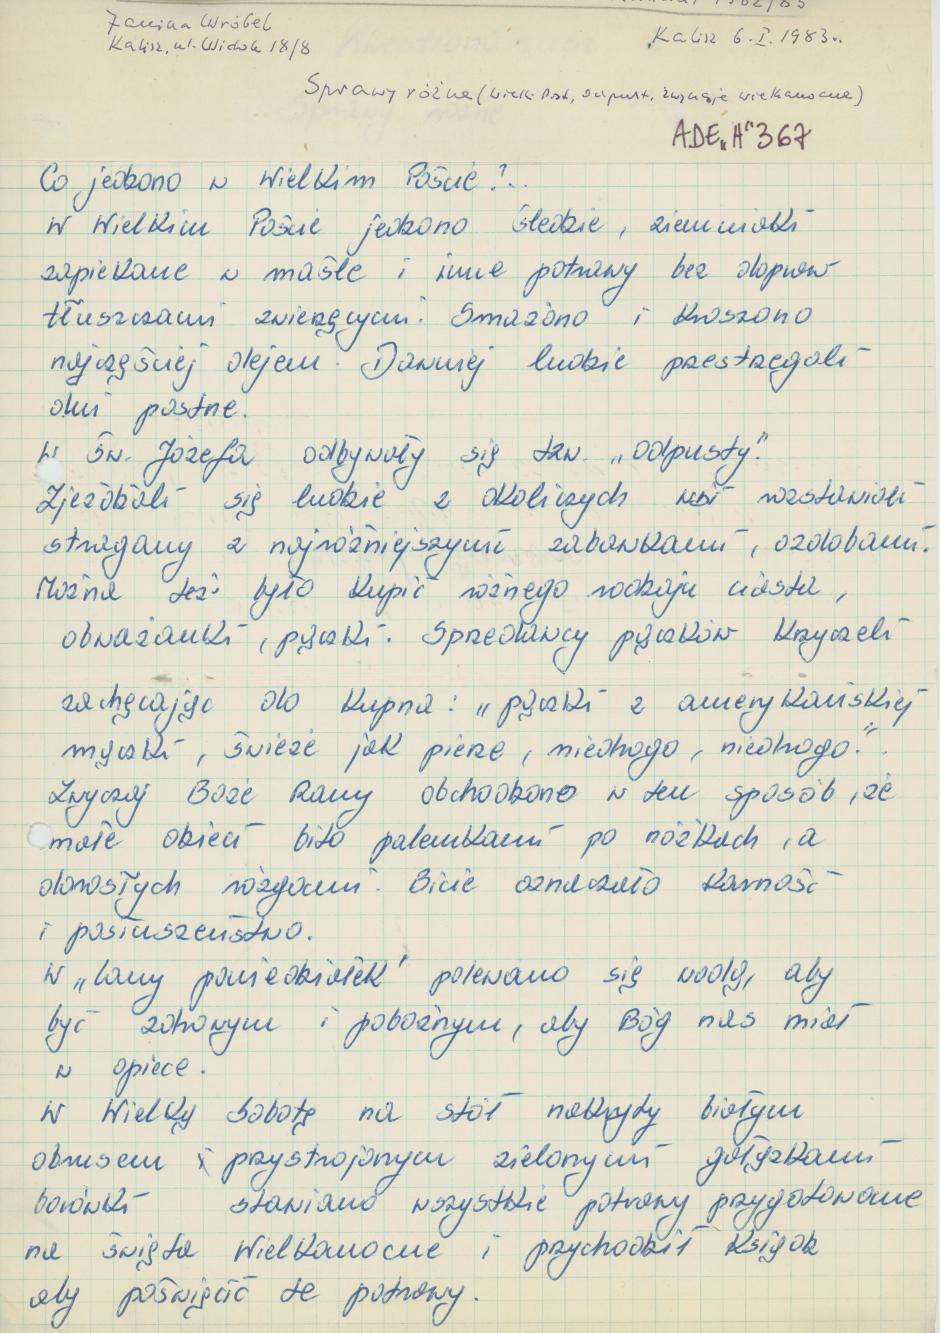 1982/83
Janina Wróbel
Kalisz, ul. Widok 18/8
Kalisz 6.I.1983r.
Sprawy różne (Wielki Post, odpust, zwyczaje wielkanocne)
ADE „A” 367
Co jedzono w Wielkim Poście?..
W Wielkim Poście jedzono śledzie, ziemniaki
zapiekane w maśle i inne potrawy bez dopraw
tłuszczami zwierzęcymi. Smażono i kraszono
najczęściej olejem. Dawniej ludzie przestrzegali
dni postne.
W św. Józefa odbywały się tzw. „odpusty”.
Zjeżdżali się ludzie z okolicznych wsi rozstawiali
stragany z najróżniejszymi zabawkami, ozdobami.
Można też było kupić różnego rodzaju ciasta,
obważanki, pączki. Sprzedawcy pączków krzyczeli
zachęcając do kupna: „pączki z amerykańskiej
mączki, świeże jak pierze, niedrogo, niedrogo.”
Zwyczaj Boże Rany obchodzono w ten sposób, że
małe dzieci bito palemkami po nóżkach, a
dorosłych rózgami. Bicie oznaczało karność
i posłuszeństwo.
W „lany poniedziałek” polewano się wodą, aby
być zdrowym i pobożnym, aby Bóg nas miał
w opiece.
W Wielką Sobotę na stół nakryty białym
obrusem i przystrojonym zielonymi gałązkami
borówki stawiano wszystkie potrawy przygotowane
na święta Wielkanocne i przychodził ksiądz
aby poświęcić te potrawy.